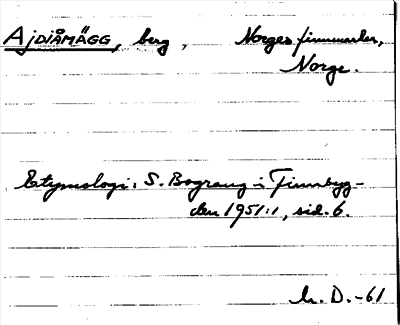 AJDIÅMÄGG, berg, Norges finnmarker,
Norge.
Etymologi: S. Bograng i Finnbyg-
den 1951:1, sid. 6.
h. D. -61